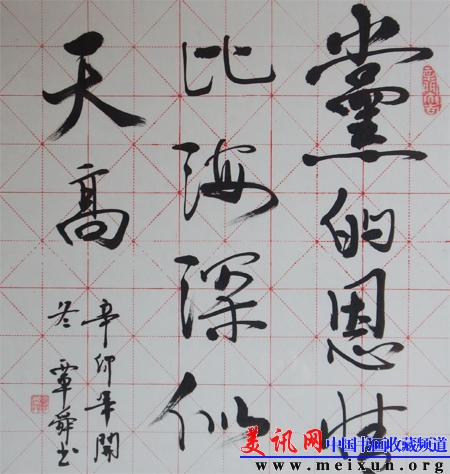 黨的恩情
比海深似
天高
辛卯年開
冬覃舜书
美讯网 中国书画收藏频道
www.meixun.org